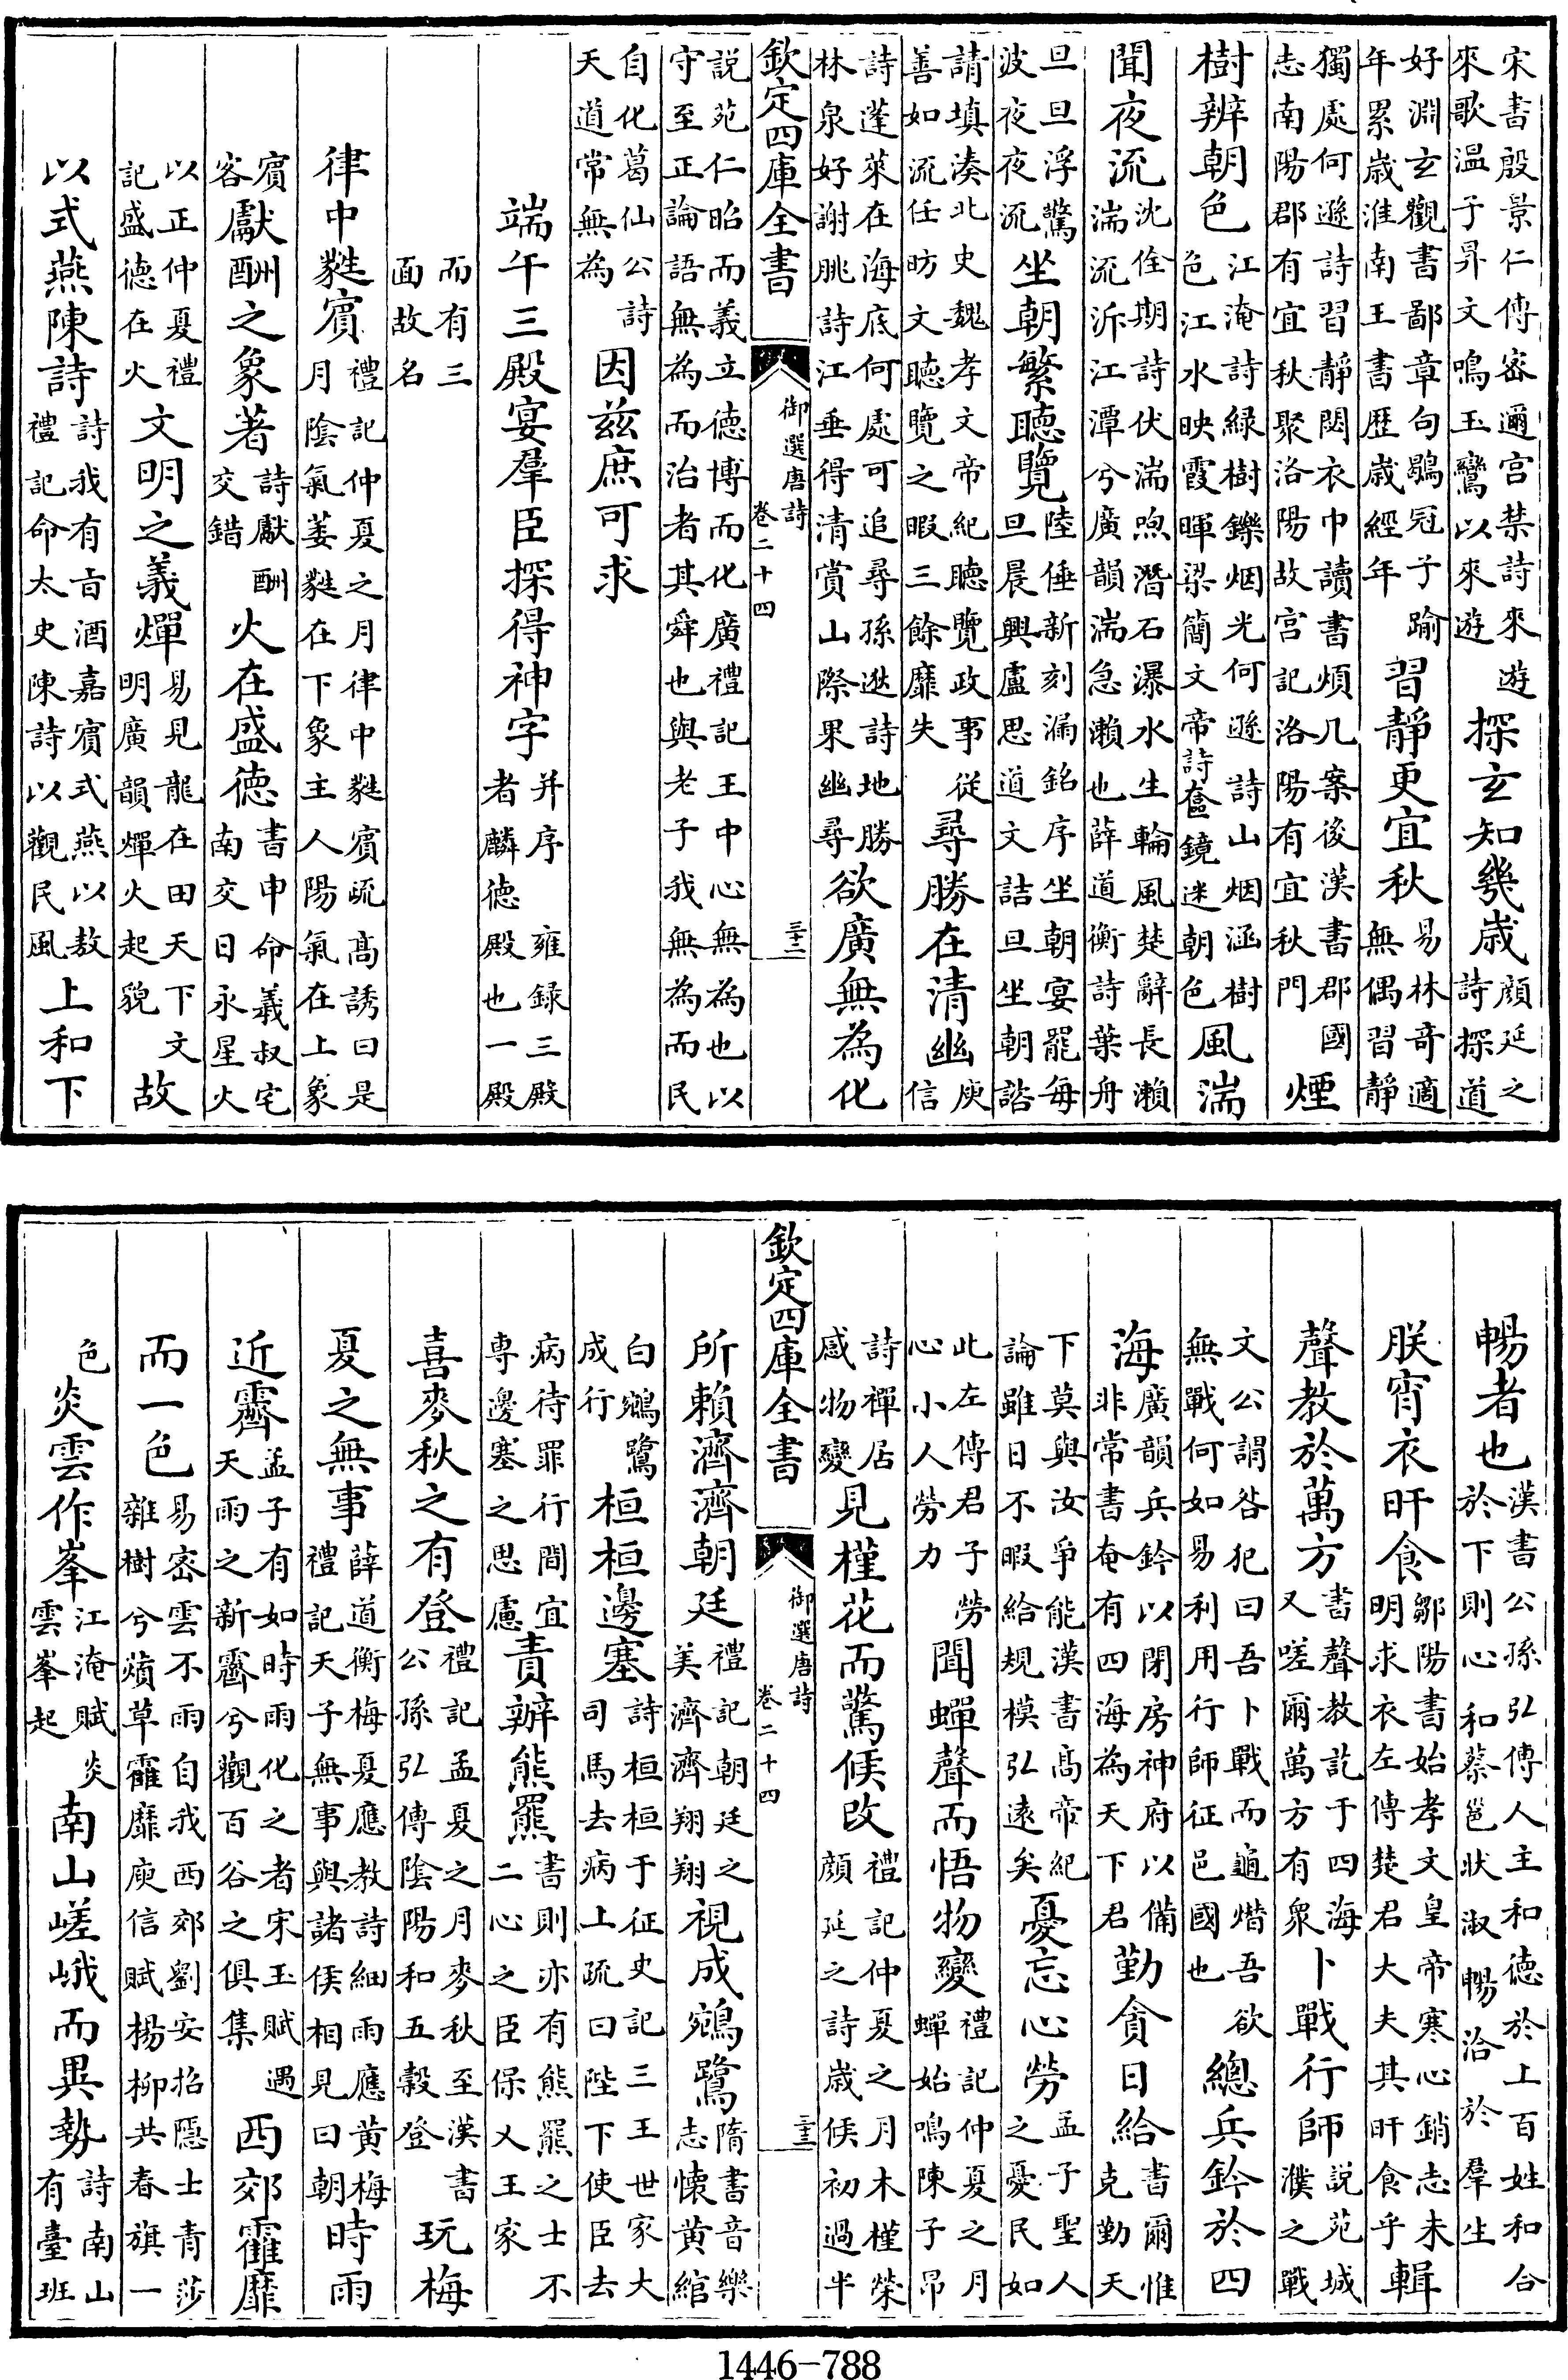 宋書殷景仁傳宻邇宫禁詩來遊來歌温子昇文鳴玉鸞以來遊探玄知幾歲顔延之詩探道
好淵玄觀書鄙章句鶡冠子踰年累歲淮南王書歷歲經年習靜更宜秋易林奇適無偶習靜
獨處何遜詩習靜閟衣巾讀書煩几案後漢書郡國志南陽郡有宜秋聚洛陽故宫記洛陽有宜秋門煙
樹辨朝色江淹詩緑樹鑠烟光何遜詩山烟涵樹色江水映霞暉梁簡文帝詩奩鏡迷朝色風湍
聞夜流沈佺期詩伏湍喣潛石瀑水生輪風楚辭長瀨湍流泝江潭兮廣韻湍急瀨也薛道衡詩葉舟
旦旦浮驚波夜夜流坐朝繁聽覽陸倕新刻漏銘序坐朝宴罷每旦晨興盧思道文詰旦坐朝諮
請填湊北史魏孝文帝紀聽覽政事從善如流任昉文聽覽之暇三餘靡失尋勝在清幽庾信
詩蓬萊在海底何處可追尋孫逖詩地勝林泉好謝朓詩江垂得清賞山際果幽尋欲廣無為化
欽定四庫全書 御選唐詩 卷二十四 三十二
説苑仁昭而義立德博而化廣禮記王中心無為也以守至正論語無為而治者其舜也與老子我無為而民
自化葛仙公詩天道常無為因兹庶可求
端午三殿宴羣臣探得神字并序 雍録三殿者麟德殿也一殿
而有三面故名
律中㽔賓禮記仲夏之月律中㽔賓疏髙誘曰是月陰氣萎㽔在下象主人陽氣在上象
賓客獻酬之象著詩獻酬交錯火在盛德書申命羲叔宅南交日永星火
以正仲夏禮記盛德在火文明之義燀易見龍在田天下文明廣韻燀火起貌故
以式燕陳詩詩我有㫖酒嘉賓式燕以敖禮記命太史陳詩以觀民風上和下
暢者也漢書公孫弘傳人主和德於上百姓和合於下則心和蔡邕狀淑暢洽於羣生
朕宵衣旰食鄒陽書始孝文皇帝寒心銷志未明求衣左傳楚君大夫其旰食乎輯
聲教於萬方書聲教訖于四海又嗟爾萬方有衆卜戰行師説苑城濮之戰
文公謂咎犯曰吾卜戰而龜熸吾欲無戰何如易利用行師征邑國也總兵鈐於四
海廣韻兵鈐以閉房神府以備非常書奄有四海為天下君勤貪日給書爾惟克勤天
下莫與汝爭能漢書髙帝紀論雖日不暇給規模弘遠矣憂忘心勞孟子聖人之憂民如
此左傳君子勞心小人勞力聞蟬聲而悟物變禮記仲夏之月蟬始鳴陳子昂
詩禪居感物變見槿花而驚候改禮記仲夏之月木槿榮顔延之詩歲候初過半
欽定四庫全書 御選唐詩 卷二十四 三十三
所賴濟濟朝廷禮記朝廷之美濟濟翔翔視成鵷鷺隋書音樂志懷黄綰
白鵷鷺成行桓桓邊塞詩桓桓于征史記三王世家大司馬去病上疏曰陛下使臣去
病待罪行間宜専邊塞之思慮責辦熊羆書則亦有熊羆之士不二心之臣保乂王家
喜麥秋之有登禮記孟夏之月麥秋至漢書公孫弘傳陰陽和五穀登玩梅
夏之無事薛道衡梅夏應教詩細雨應黄梅禮記天子無事與諸侯相見曰朝時雨
近霽孟子有如時雨化之者宋玉賦遇天雨之新霽兮觀百谷之俱集西郊霍靡
而一色易密雲不雨自我西郊劉安招隱士青莎雜樹兮薠草靃靡庾信賦楊柳共春旗一
色炎雲作峯江淹賦炎雲峯起南山嵯峨而異勢詩南山有臺班
1446-788